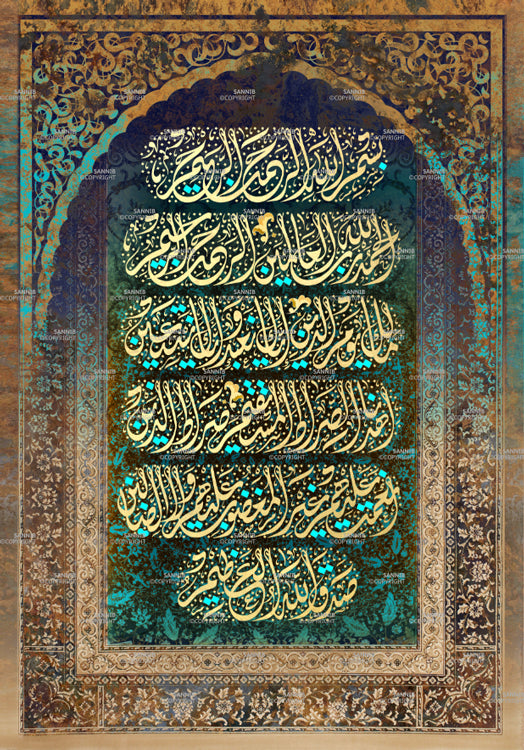 بسم الله الرحمن الرحيم
الحمد لله رب العالمين الرحمن الرحيم
مالك يوم الدين إياك نعبد وإياك نستعين
اهدنا الصراط المستقيم صراط الذين
أنعمت عليهم غير المغضوب عليهم ولا الضالين
صدق الله العظيم
SANNIB
©COPYRIGHT